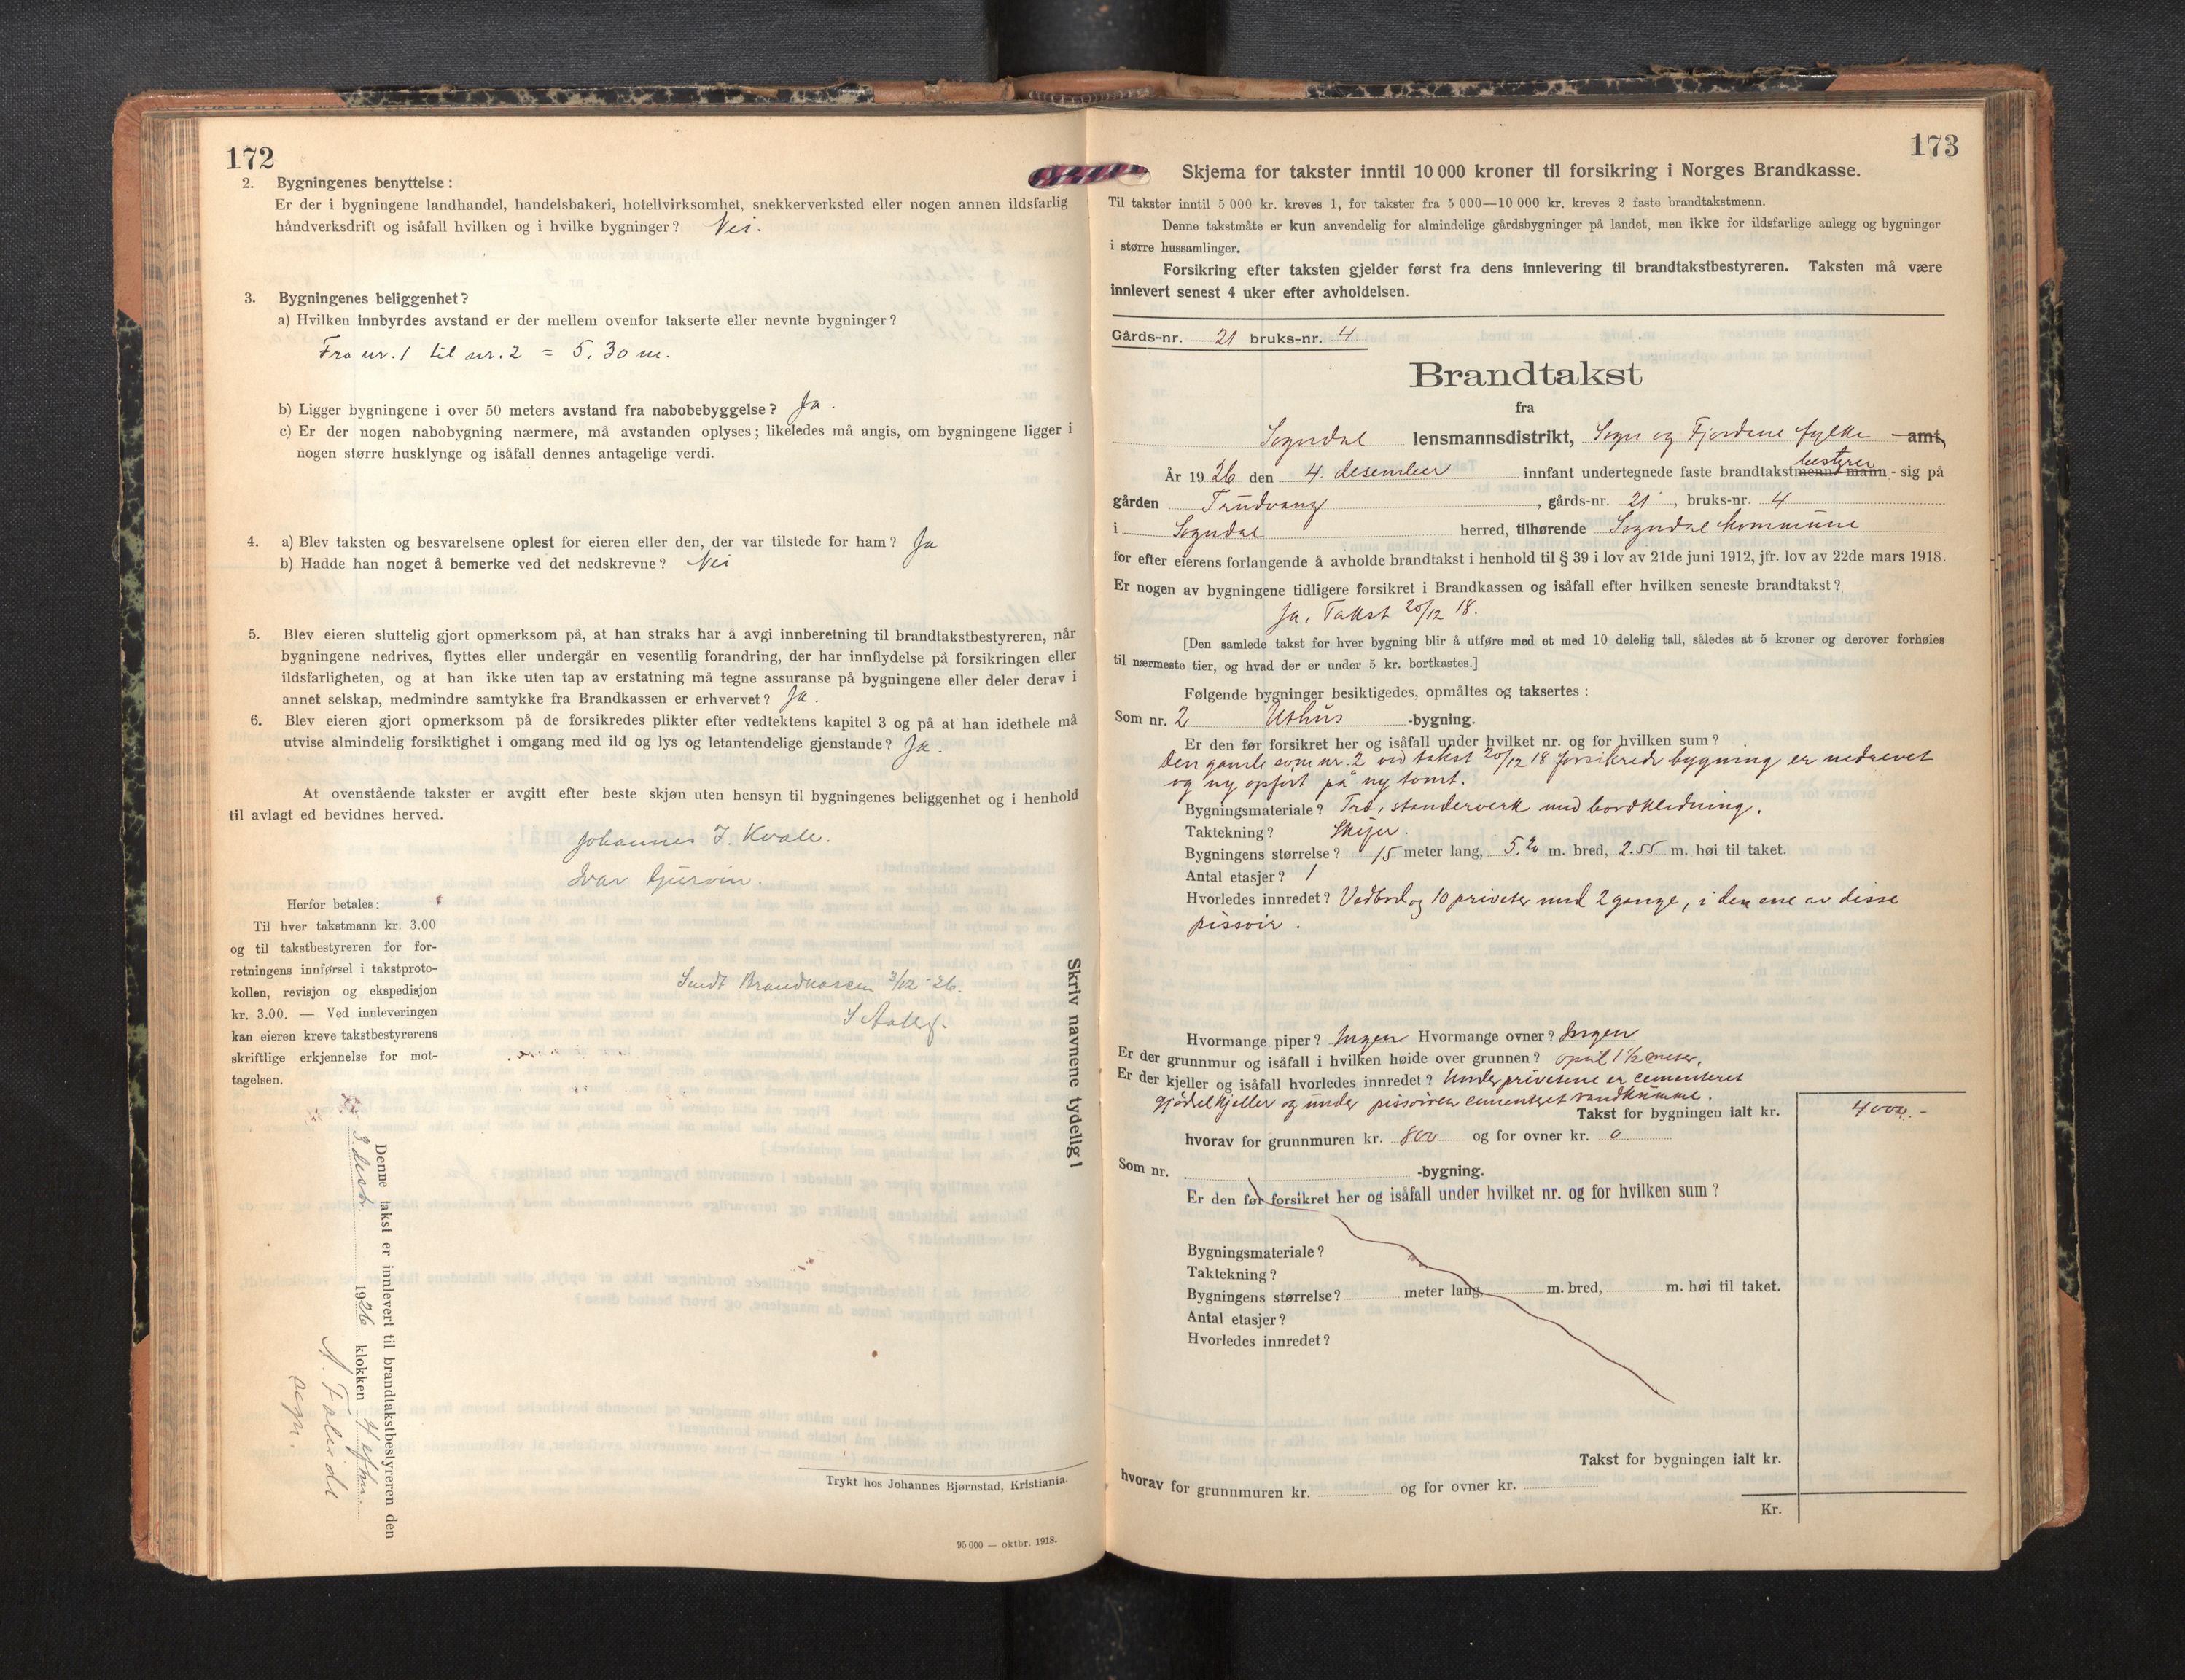 172
2. Bygningenes benyttelse :
Er der i bygningene landhandel, handelsbakeri, hotellvirksomhet, snekkerverksted eller nogen annen ildsfarlig
håndverksdrift og isåfall hvilken og i hvilke bygninger? Nei.
3. Bygningenes beliggenhet?
a) Hvilken innbyrdes avstand er der mellem ovenfor takserte eller nevnte bygninger?
Fra nr. 1 til nr. 2 = 5,30 m.
b) Ligger bygningene i over 50 meters avstand fra nabobebyggelse? Ja.
c) Er der nogen nabobygning nærmere, må avstanden oplyses; likeledes må angis, om bygningene ligger i
nogen større husklynge og isåfall dennes antagelige verdi.
4. a) Blev taksten og besvarelsene oplest for eieren eller den, der var tilstede for ham? Ja
b) Hadde han noget å bemerke ved det nedskrevne? Nei
5. Blev eieren sluttelig gjort opmerksom på, at han straks har å avgi innberetning til brandtakstbestyreren, når
bygningene nedrives, flyttes eller undergår en vesentlig forandring, der har innflydelse på forsikringen eller
ildsfarligheten, og at han ikke uten tap av erstatning må tegne assuranse på bygningene eller deler derav i
annet selskap, medmindre samtykke fra Brandkassen er erhvervet? Ja.
6. Blev eieren gjort opmerksom på de forsikredes plikter efter vedtektens kapitel 3 og på at han idethele må
utvise almindelig forsiktighet i omgang med ild og lys og letantendelige gjenstande? Ja.
At ovenstående takster er avgitt efter beste skjøn uten hensyn til bygningenes beliggenhet og i henhold
til avlagt ed bevidnes herved.
Johannes J. Kvale.
Ivar Gurvin.
Herfor betales:
Til hver takstmann kr. 3.00
og til takstbestyreren for for-
retningens innførsel i takstproto-
kollen, revisjon og ekspedisjon
kr. 3.00. — Ved innleveringen
kan eieren kreve takstbestyrerens
skriftlige erkjennelse for mot-
tagelsen.
Sendt Brandkassen 3/12-26.
Skriv navnene tydelig!
Denne takst er innlevert til brandtakstbestyreren den
3. desbr. 1926 klokken 4 efm.
Trykt hos Johannes Bjørnstad, Kristiania.
95 000 — oktbr. 1918.
173
Skjema for takster inntil 10 000 kroner til forsikring i Norges Brandkasse.
Til takster inntil 5 000 kr. kreves 1, for takster fra 5 000—10 000 kr. kreves 2 faste brandtakstmenn.
Denne takstmåte er kun anvendelig for almindelige gårdsbygninger på landet, men ikke for ildsfarlige anlegg og bygninger
i større hussamlinger.
Forsikring efter taksten gjelder først fra dens innlevering til brandtakstbestyreren. Taksten må være
innlevert senest 4 uker efter avholdelsen.
Gårds-nr. 21 bruks-nr. 4
Brandtakst
fra
Sogndal lensmannsdistrikt, Sogn og Fjordane fylke amt,
År 1926 den 4. desember innfant undertegnede faste brandtakstmenn mann bestyrer - sig på
gården Trudvang, gårds-nr. 21, bruks-nr. 4
i Sogndal herred, tilhørende Sogndal kommune
for efter eierens forlangende å avholde brandtakst i henhold til § 39 i lov av 21de juni 1912, jfr. lov av 22de mars 1918.
Er nogen av bygningene tidligere forsikret i Brandkassen og isåfall efter hvilken seneste brandtakst?
Ja, Takst 20/12 18.
[Den samlede takst for hver bygning blir å utføre med et med 10 delelig tall, således at 5 kroner og derover forhøies
til nærmeste tier, og hvad der er under 5 kr. bortkastes.]
Følgende bygninger besiktigedes, opmåltes og taksertes :
Som nr. 2 Uthus -bygning.
Er den før forsikret her og isåfall under hvilket nr. og for hvilken sum?
Den gamle som nr. 2 ved takst 20/12 18 forsikrede bygning er nedrevet
og ny opført på ny tomt.
Bygningsmateriale? Træ, standerverk med bordkledning.
Taktekning? Skifer.
Bygningens størrelse? 15 meter lang, 5.20 m. bred, 2.55 m. høi til taket.
Antal etasjer? 1
Hvorledes innredet? Vedbod og 10 priveter med 2 gange, i den ene av disse
pissoir.
Hvormange piper? Ingen Hvormange ovner? Ingen
Er der grunnmur og isåfall i hvilken høide over grunnen? optil 1 1/2 meter.
Er der kjeller og isåfall hvorledes innredet? Under privetene er cementeret
gjødselkjeller og under pissoiren cementeret vandkumme.
Takst for bygningen ialt kr. 4000.-
hvorav for grunnmuren kr. 800 og for ovner kr. 0
Som nr. -bygning.
Er den før forsikret her og isåfall under hvilket nr. og for hvilken sum?
Bygningsmateriale?
Taktekning?
Bygningens størrelse? meter lang, m. bred, m. høi til taket.
Antal etasjer?
Hvorledes innredet?
Takst for bygningen ialt kr.
hvorav for grunnmuren kr. og for ovner kr.
Kr.